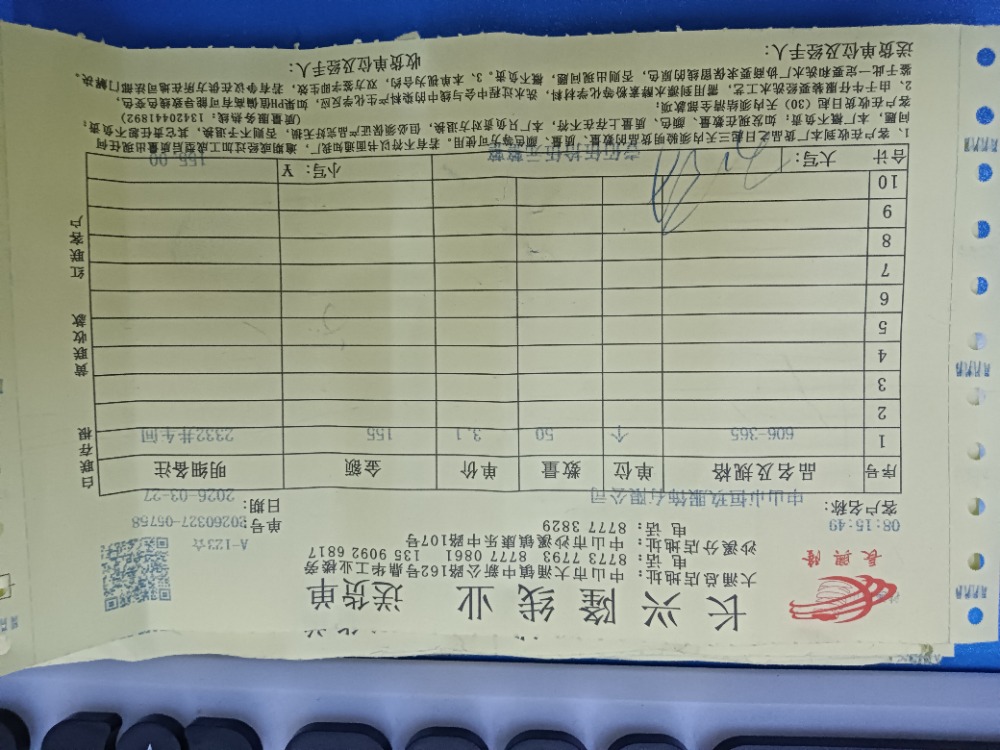 长兴隆线业 送货单
長興隆
大涌总店地址：中山市大涌镇中新公路162号鼎华工业楼旁
电 话：8773 7793 8777 0861 135 9092 6817
沙溪分店地址：中山市沙溪镇康乐中路107号
电 话：8777 3829
A-123仓
08:15:49
单号：20260327-05758
客户名称：中山市恒玖服饰有限公司
日期：2026-03-27
序号 品名及规格 单位 数量 单价 金额 明细备注
1 606-365 个 50 3.1 155 2332井车间
2
3
4
5
6
7
8
9
10
合计 大写：壹佰伍拾伍元整 小写：￥ 155.00
白联存根 黄联收款 红联客户
1、客户在收到本厂货品之日起三天内须验明货品的数量、质量、颜色等方可使用。若有不符以书面通知我厂，逾期或经过加工成型后质量出现任何
问题，本厂概不负责；如发现在数量、颜色、质量上存在不符，本厂只负责对方退换，但必须保证产品完好无损，否则不予退换，其它责任超不负责；
客户在收货日起（30）天内须结清全部款项； （质量服务热线：13420441892）
2、由于牛仔服装要经洗水工艺，需用到漂水酵素粉等化学材料，洗水过程中会与线中的染料产生化学反应，如果PH值偏高有可能导致线色变色，
鉴于此一定要和洗水厂协商要求保留线的原色，否则出现问题，概不负责。3、本单视为合约，双方签字即生效，若有争议在供方所在地司法部门解决。
送货单位及经手人： 收货单位及经手人：